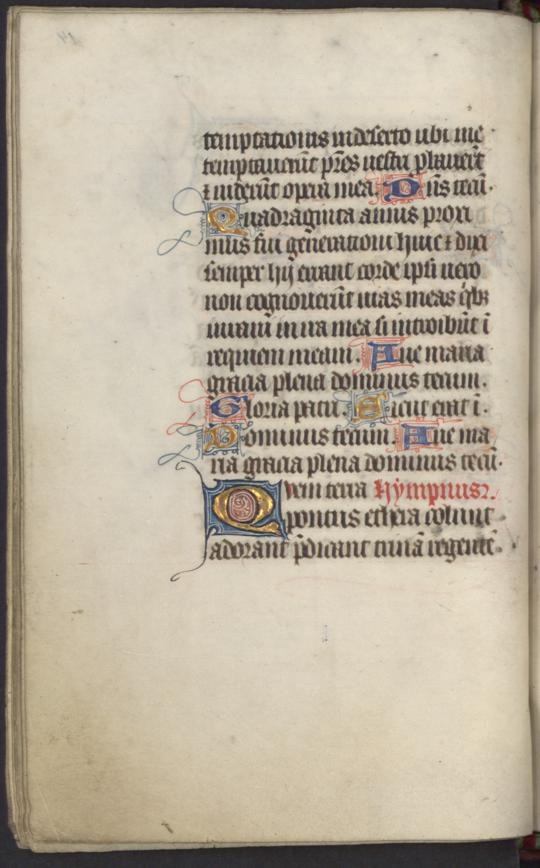 temptationis in deserto ubi me
temptauerūt pr̄es uestri ꝓbauerūt
⁊ uiderūt opera mea. Dn̄s tecū.
Quadraginta annis proxi
mus fui generationi huic ⁊ dixi
semper hij errant corde ipsi uero
non cognouerūt uias meas qͥbꝫ
iuraui in ira mea si introibūt ī
requiem meam. Aue maria
gracia plena dominus tecum.
Gloria patri. Sicut erat ī.
Dominus tecum. Aue ma
ria gracia plena dominus tecū.
Quem terra Hympnus
pontus ethera colunt
adorant p̄dicant trinā regentē